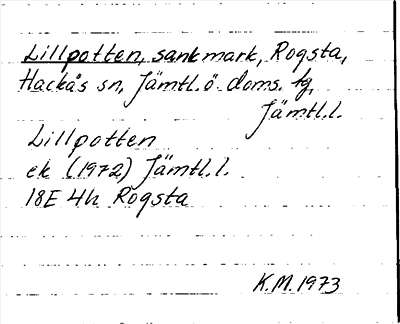 Lillpotten, sankmark, Rogsta,
Hackås sn, Jämtl. ö. doms. tg,
Jämtl.l.
Lillpotten
ek (1972) Jämtl.l.
18E 4h Rogsta
K.M. 1973